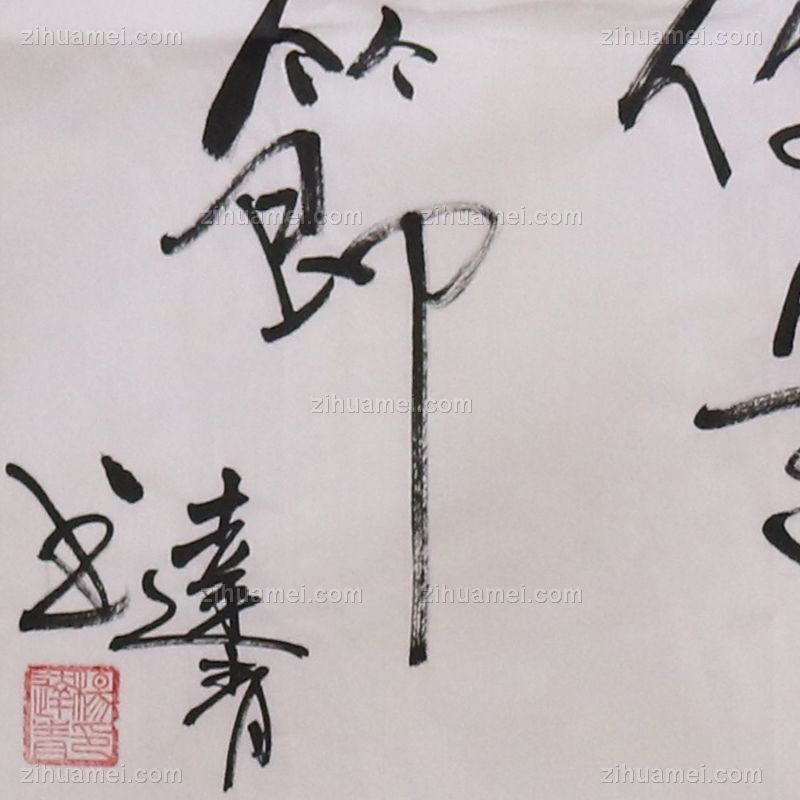 節
達青
书
楊印達青
zihuamei.com zihuamei.com zihuamei.com
zihuamei.com zihuamei.com
zihuamei.com
zihuamei.com zihuamei.com
zihuamei.com zihuamei.com